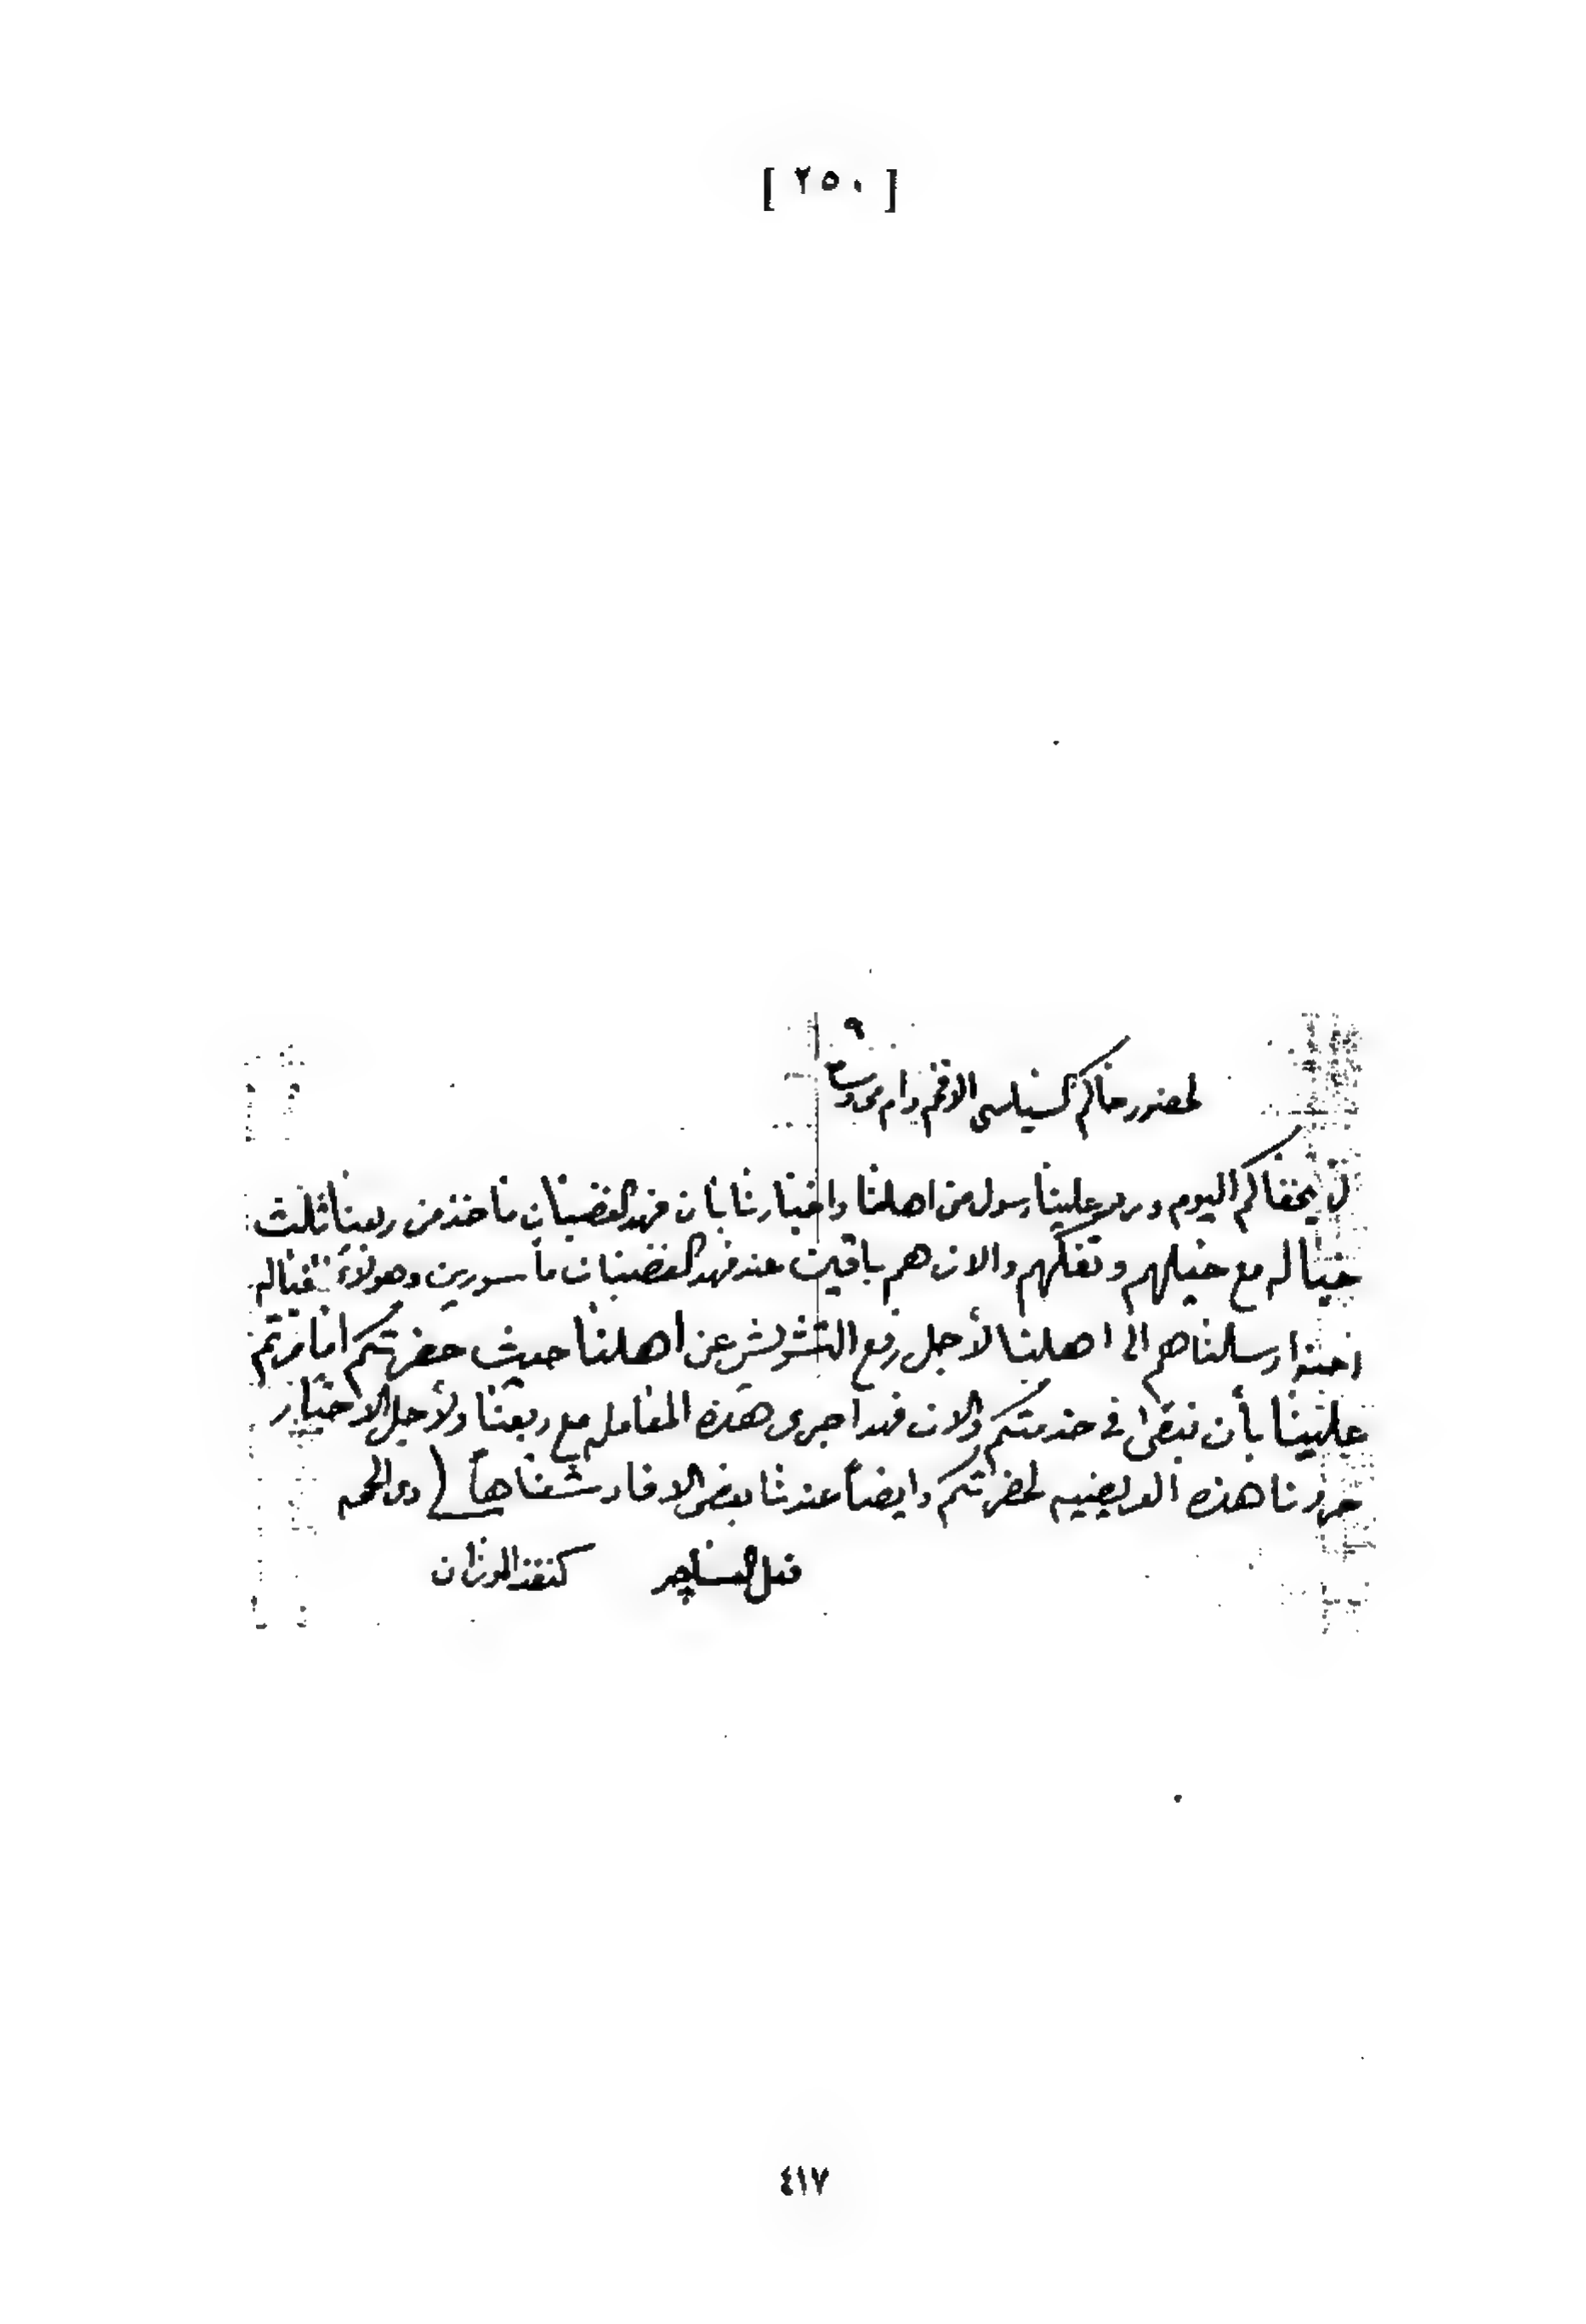 [ ٢٥٠ ]
٩
لحضور حاكم السياسي الافخم دام محروسا
لا يخفاكم اليوم ورد علينا رسول من اهلنا واخبارنا بان فهد الغضبان ماخذ من ربعنا ثلث
خياله مع خيلهم وتفكهم والان هم باقين عند فهد الغضبان مأسورين وهولاء الخياله
احنا ارسلناهم الى اهلنا لأجل رفع التشويش عن اهلنا حيث حضرتكم امامرتم
علينا بأن نبقى في خدمتكم والان فهد اجرى هذه المعامله مع ربعنا ولأجل الاخبار
حررنا هذه العريضيه لحضرتكم وايضاً عندنا بعض الافاد شفاهاً